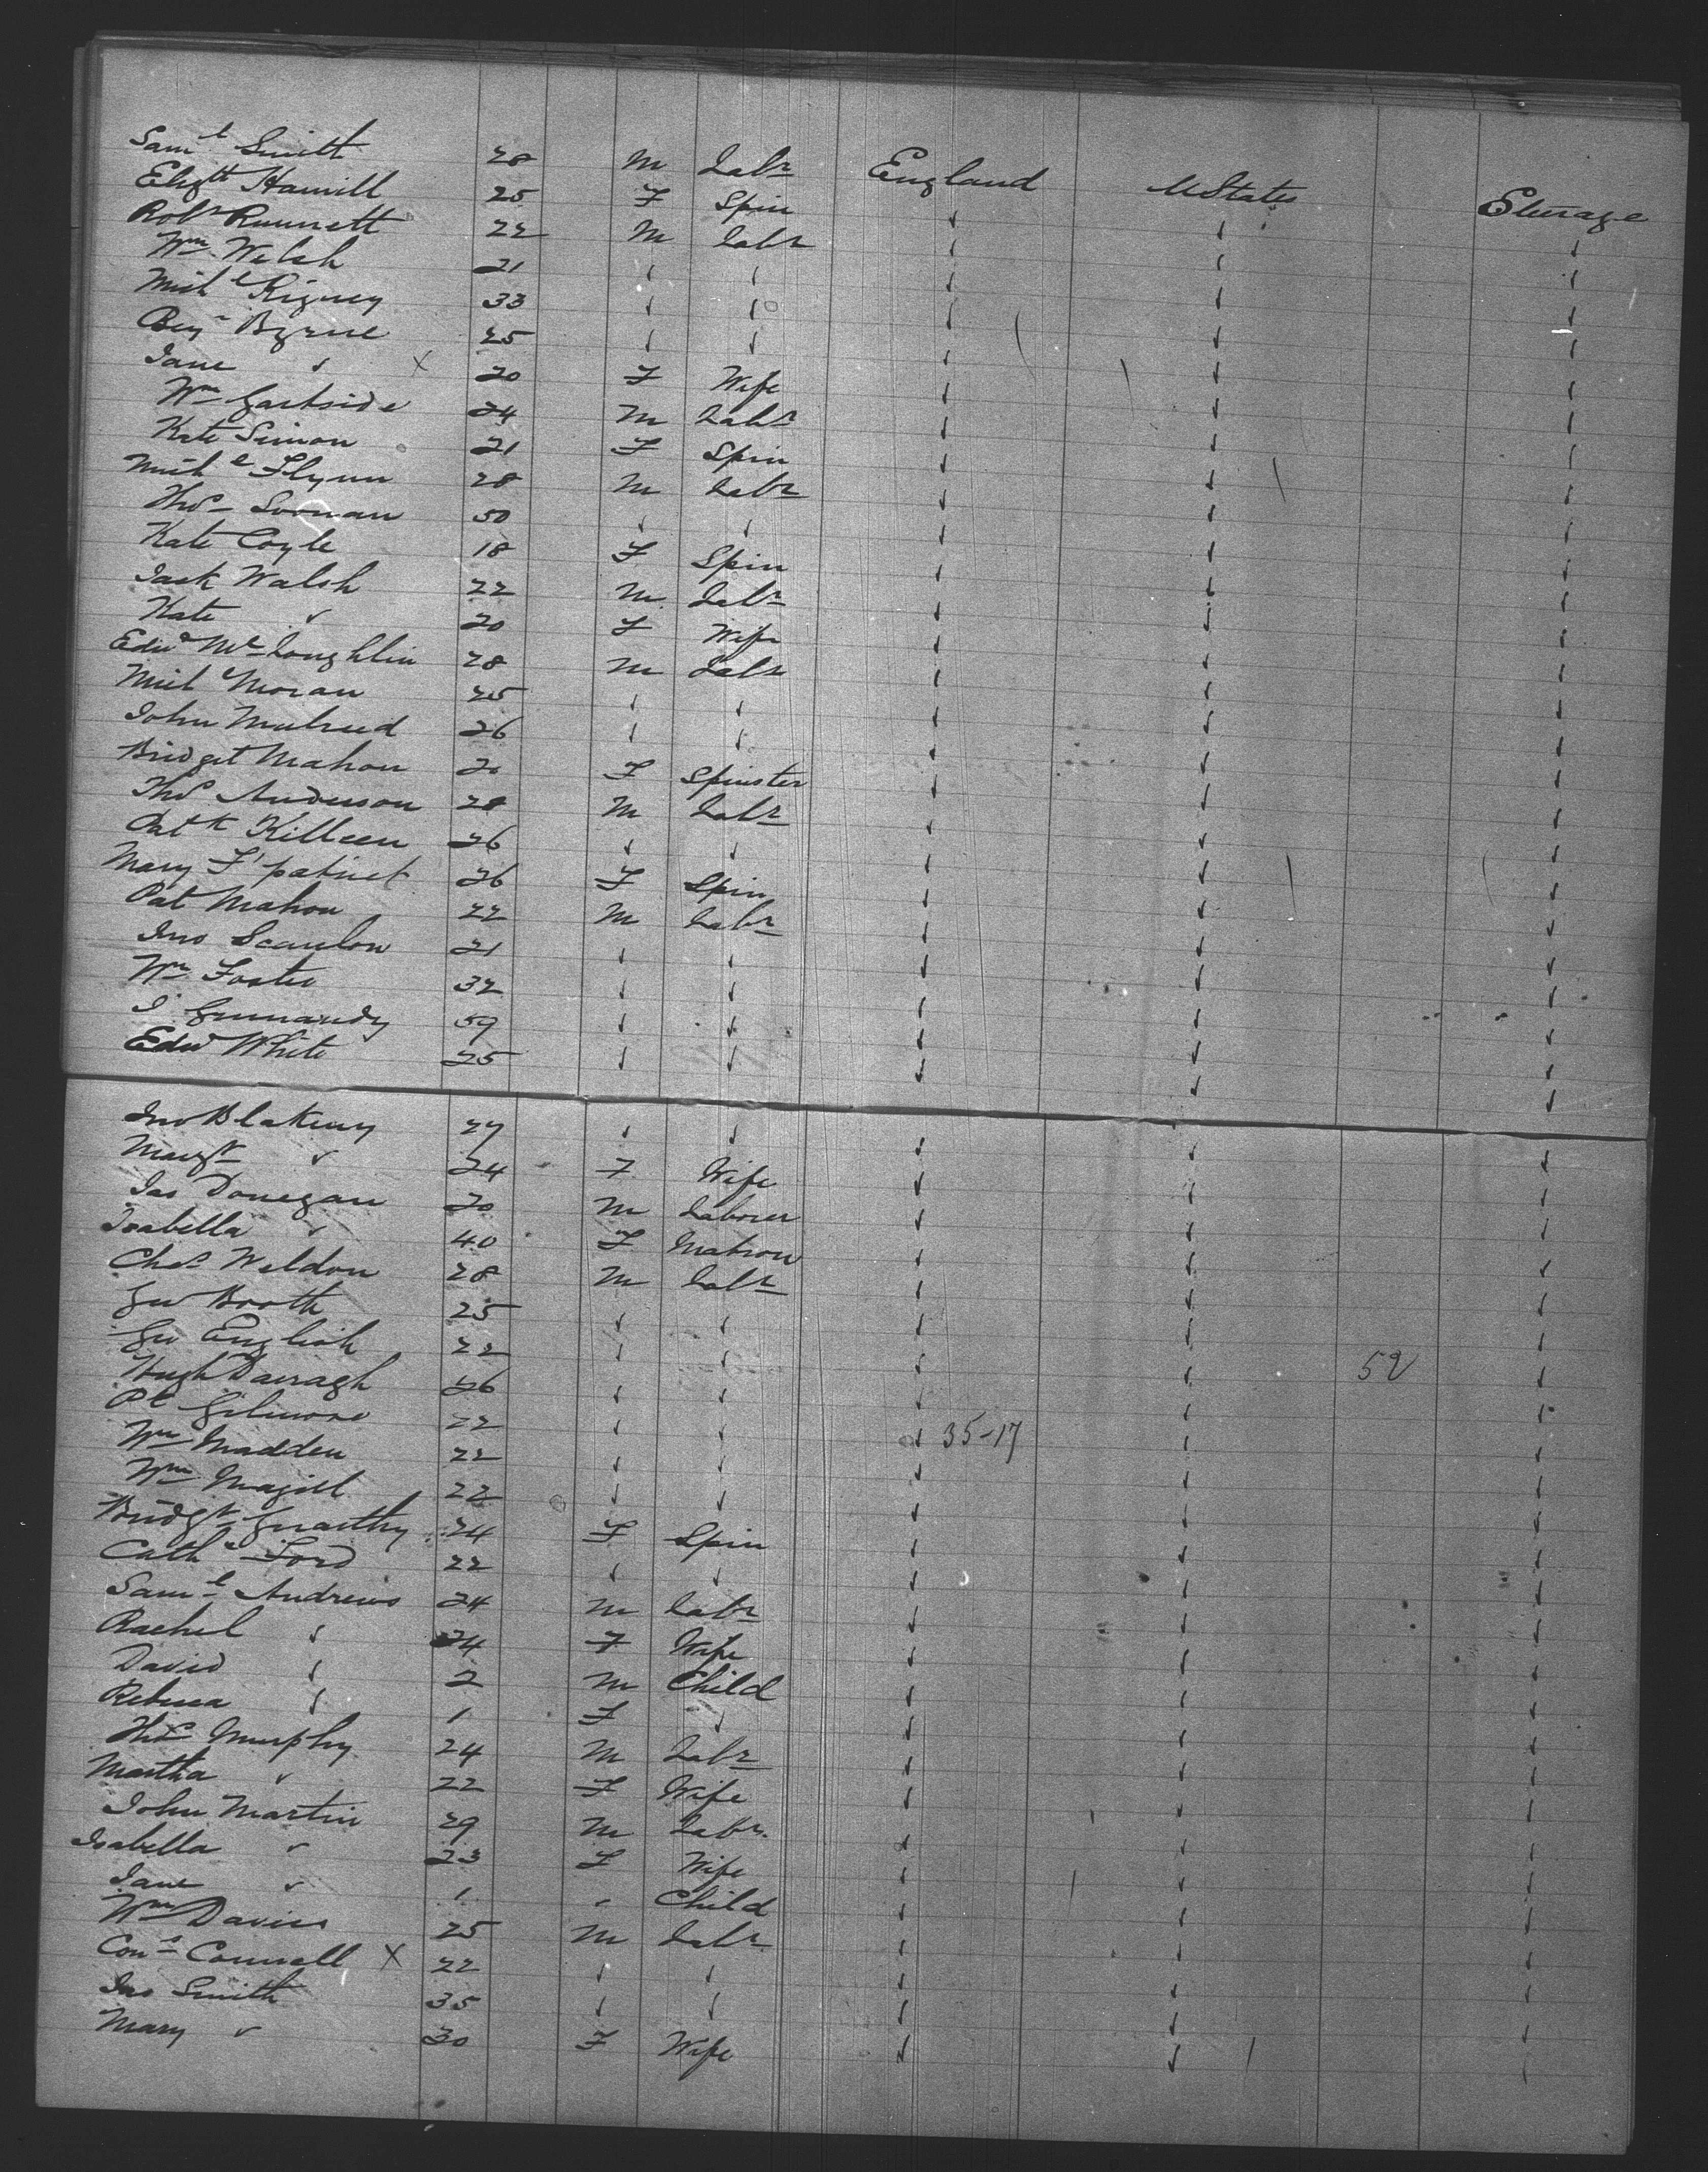 Saml Smith 28 M Labr England UStates Steerage
Elizth Hamill 25 F Spin
Robt Runnett 22 M Labr
Wm Welsh 21
Michl Rigney 33
Benj Byrne 25
Jane " X 20 F Wife
Wm Gartside 24 M Labr
Kate Simon 21 F Spin
Michl Flynn 28 M Labr
Thos Loonan 50
Kate Coyle 18 F Spin
Jack Walsh 22 M Labr
Kate " 20 F Wife
Edwd McLoughlin 28 M Labr
Michl Moran 25
John Mulreed 26
Bridget Mahon 20 F Spinster
Thos Anderson 28 M Labr
Patk Killeen 26
Mary F'patrick 26 F Spin
Pat Mahon 22 M Labr
Jno Scanlon 21
Wm Foster 32
J 59
Edwd White 25
Jno Blakeny 27
Margt " 24 F Wife
Jas Donegan 20 M Laborer
Isabella " 40 F Matron
Chas Weldon 28 M Labr
Geo Booth 25
Geo English 22 52
Hugh Darragh 26
Pt Gilmore 22 35-17
Wm Madden 22
Wm Magill 22
Bridgt 24 F Spin
Cathe Ford 22
Saml Andrews 24 M Labr
Rachel " 24 F Wife
David " 2 M Child
Rebecca " 1 F
Thos Murphy 24 M Labr
Martha " 22 F Wife
John Martin 29 M Labr
Isabella " 23 F Wife
Jane " 1 " Child
Wm Davies 25 M Labr
Cons Connell X 22
Jno Smith 35
Mary " 30 F Wife